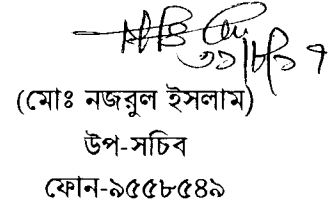 (মোঃ নজরুল ইসলাম)
উপ-সচিব
ফোন-৯৫৫৮৫৪৯